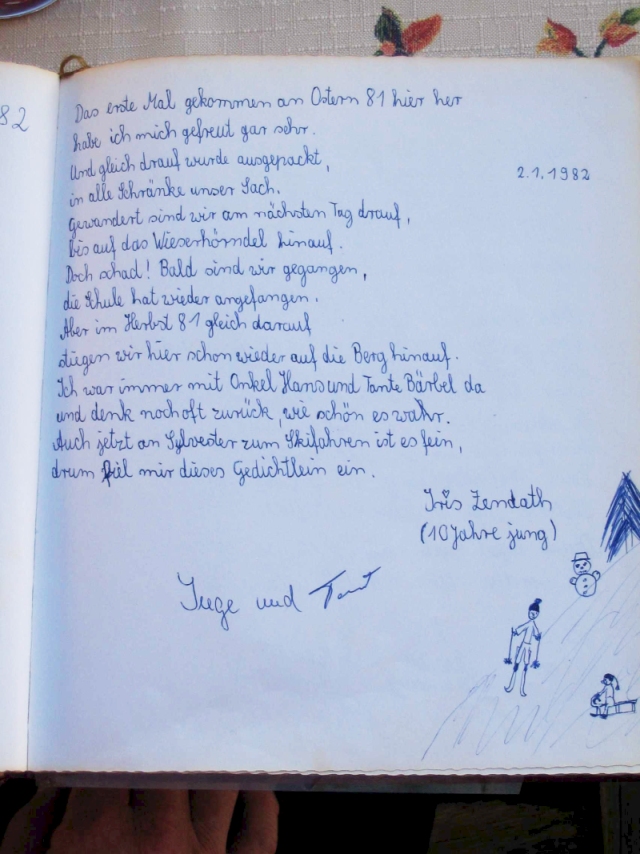 82
Das erste Mal gekommen an Ostern 81 hier her
habe ich mich gefreut gar sehr.
Und gleich drauf wurde ausgepackt,
2.1.1982
in alle Schränke unser Sach.
Gewandert sind wir am nächsten Tag drauf,
bis auf das Wieserhörndel hinauf.
Doch schad! Bald sind wir gegangen,
die Schule hat wieder angefangen.
Aber im Herbst 81 gleich darauf
stiegen wir hier schon wieder auf die Berg hinauf.
Ich war immer mit Onkel Hans und Tante Bärbel da
und denk noch oft zurück, wie schön es wahr.
Auch jetzt an Sylvester zum Skifahren ist es fein,
drum fiel mir dieses Gedichtlein ein.
Iris Zendath
(10 Jahre jung)
und